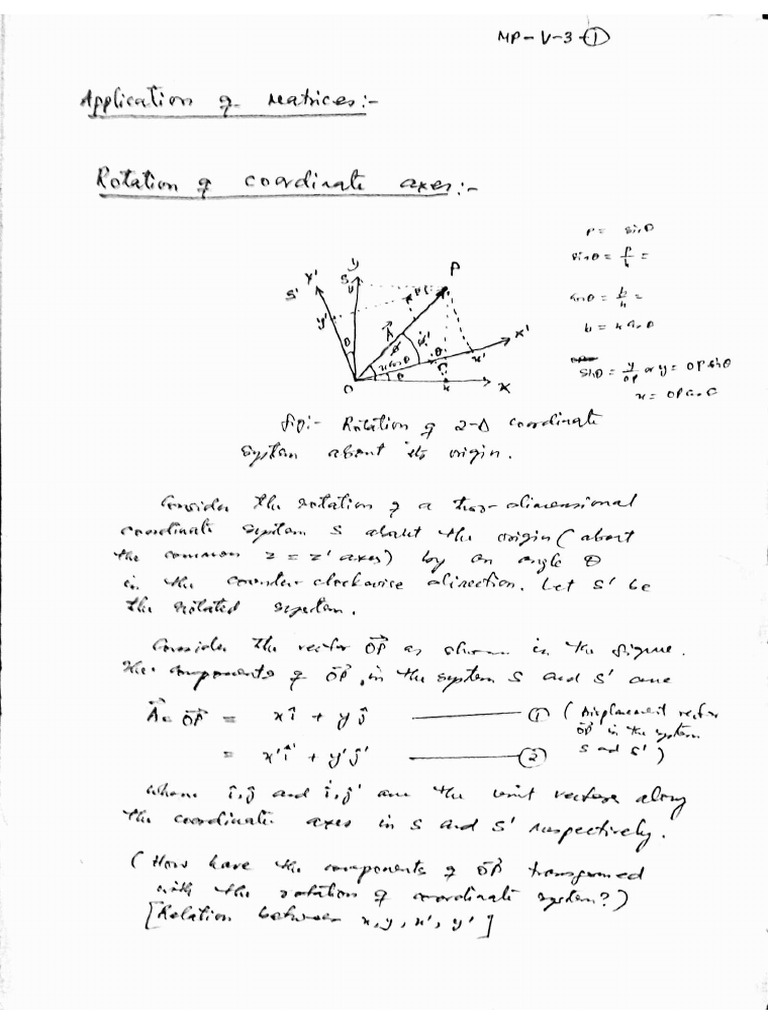 MP-V-3-①
Application of Matrices:-
Rotation of coordinate axes:-
P = sinθ
sinθ = p/h =
cosθ = b/h =
b = h cosθ
sinθ = y/OP or y = OP sinθ
x = OP cosθ
Y'
S'
y
S
P
y'
A⃗
X'
x'
θ
ϕ
x cosθ
θ
O
x
X
fig:- Rotation of 2-D coordinate
system about its origin.
Consider the rotation of a two-dimensional
coordinate system S about the origin (about
the common z = z' axes) by an angle θ
in the counter-clockwise direction. Let S' be
the rotated system.
Consider the vector OP⃗ as shown in the figure.
The components of OP⃗, in the system S and S' are
A⃗ = OP⃗ = x î + y ĵ ——— ① (Displacement vector
OP⃗ in the system
S and S')
= x' î' + y' ĵ' ——— ②
where î, ĵ and î', ĵ' are the unit vectors along
the coordinate axes in S and S' respectively.
(How have the components of OP⃗ transformed
with the rotation of coordinate system?)
[Relation between x, y, x', y']